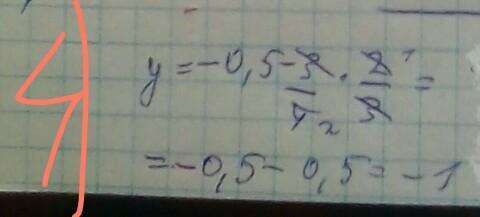 4)
y = -0,5 - 3/4₂ · 2¹/3 =
= -0,5 - 0,5 = -1